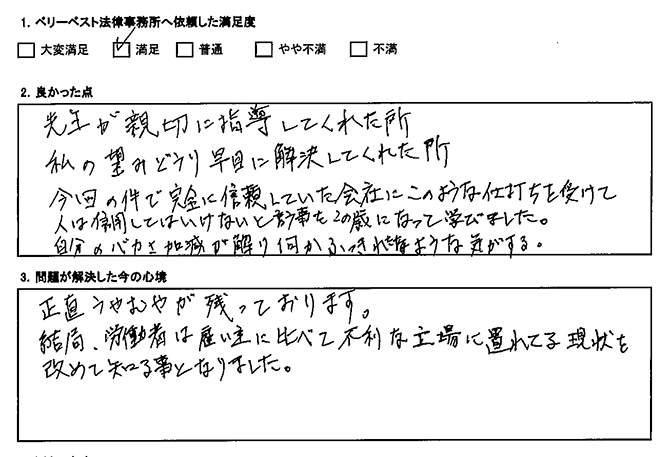 1. ベリーベスト法律事務所へ依頼した満足度
大変満足 満足 普通 やや不満 不満
2. 良かった点
先生が親切に指導してくれた所
私の望みどうり早目に解決してくれた所
今回の件で完全に信頼していた会社にこのような仕打ちを受けて
人は信用してはいけないと言う事をこの歳になって学びました。
自分のバカさ加減が解り何かふっきれたような気がする。
3. 問題が解決した今の心境
正直うやむやが残っております。
結局、労働者は雇い主に比べて不利な立場に置れてる現状を
改めて知る事となりました。